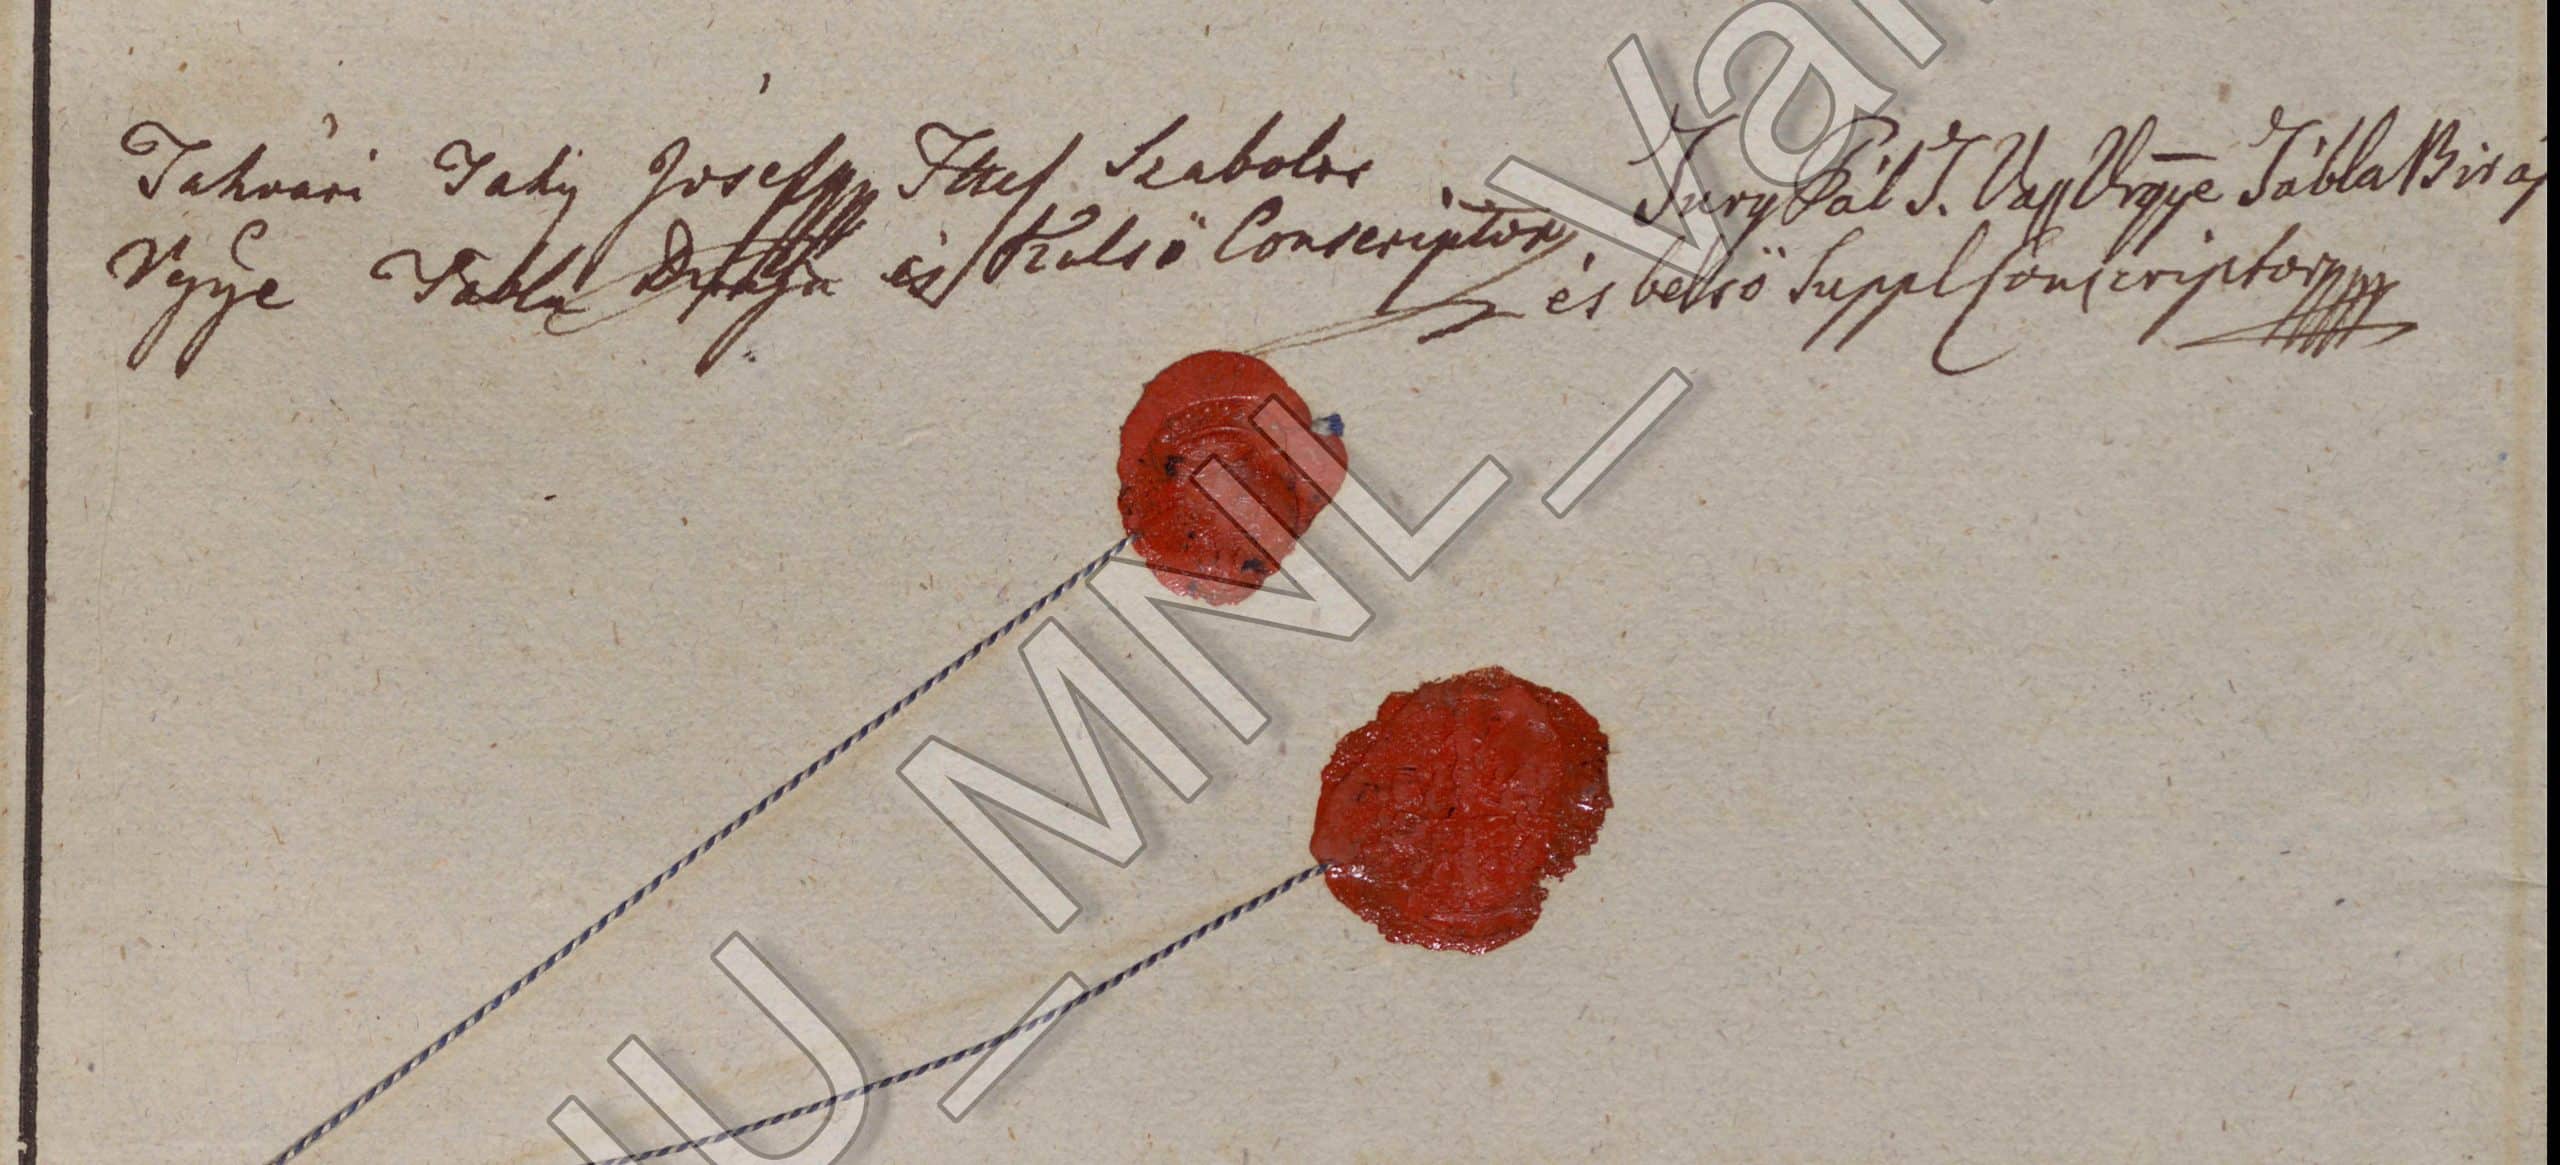 Tahvári Tahy Josef Ittes Szabolcs
Vgÿe Tábla Birája és Külsö Conscriptor
Jury Pál T. Vas Vrgye Tábla Birája
és belsö Suppl Conscriptor
HU_MNL_Var